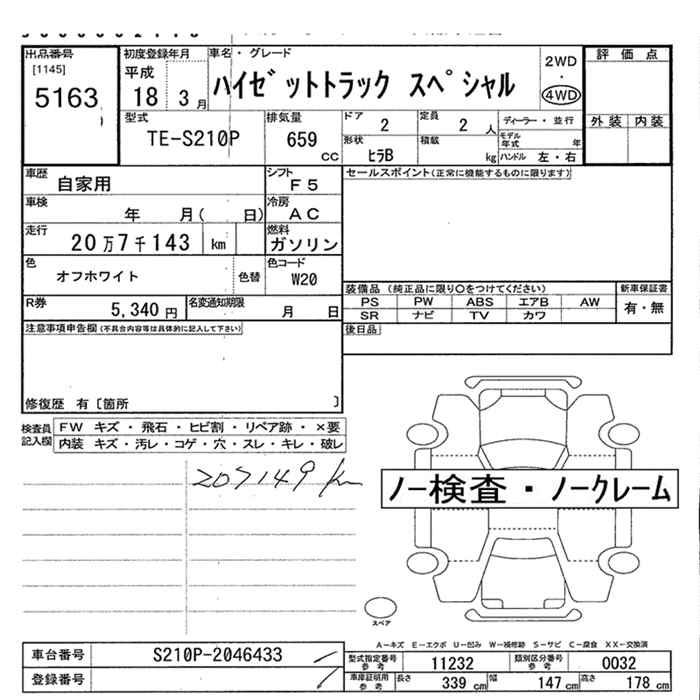 出品番号
[1145]
5163
初度登録年月
平成
18 3 月
車名・グレード
ハイゼットトラック スペシャル
2WD
・
4WD
評価点
外装 内装
型式
TE-S210P
排気量
659 cc
ドア
2
定員
2 人
形状
ヒラB
積載
kg
ディーラー・並行
モデル年式 年
ハンドル 左・右
車歴
自家用
シフト
F5
車検
年 月( 日)
冷房
AC
走行
20万7千143 km
燃料
ガソリン
色
オフホワイト
色替
色コード
W20
R券
5,340 円
名変通知期限
月 日
セールスポイント(正常に機能するものに限ります)
装備品 (純正品に限り○をつけてください)
PS PW ABS エアB AW
SR ナビ TV カワ
新車保証書
有・無
後日品
注意事項申告欄(不具合内容等は具体的に記入して下さい)
修復歴 有〔箇所 〕
検査員記入欄
FW キズ・飛石・ヒビ割・リペア跡・×要
内装 キズ・汚レ・コゲ・穴・スレ・キレ・破レ
207149 km
ノー検査・ノークレーム
スペア
A-キズ E-エクボ U-凹み W-補修跡 S-サビ C-腐食 XX-交換済
車台番号
S210P-2046433
登録番号
型式指定番号参考
11232
類別区分番号参考
0032
車庫証明用参考
長さ 339 cm
幅 147 cm
高さ 178 cm